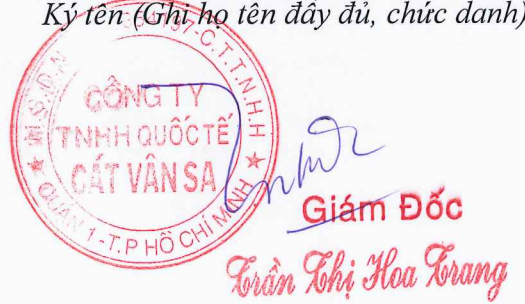 Ký tên (Ghi họ tên đầy đủ, chức danh)
M.S.D.N
97-C.T.T.N.H.H
CÔNG TY
TNHH QUỐC TẾ
CÁT VÂN SA
QUẬN 1-T.P HỒ CHÍ MINH
Giám Đốc
Trần Thị Hoa Trang